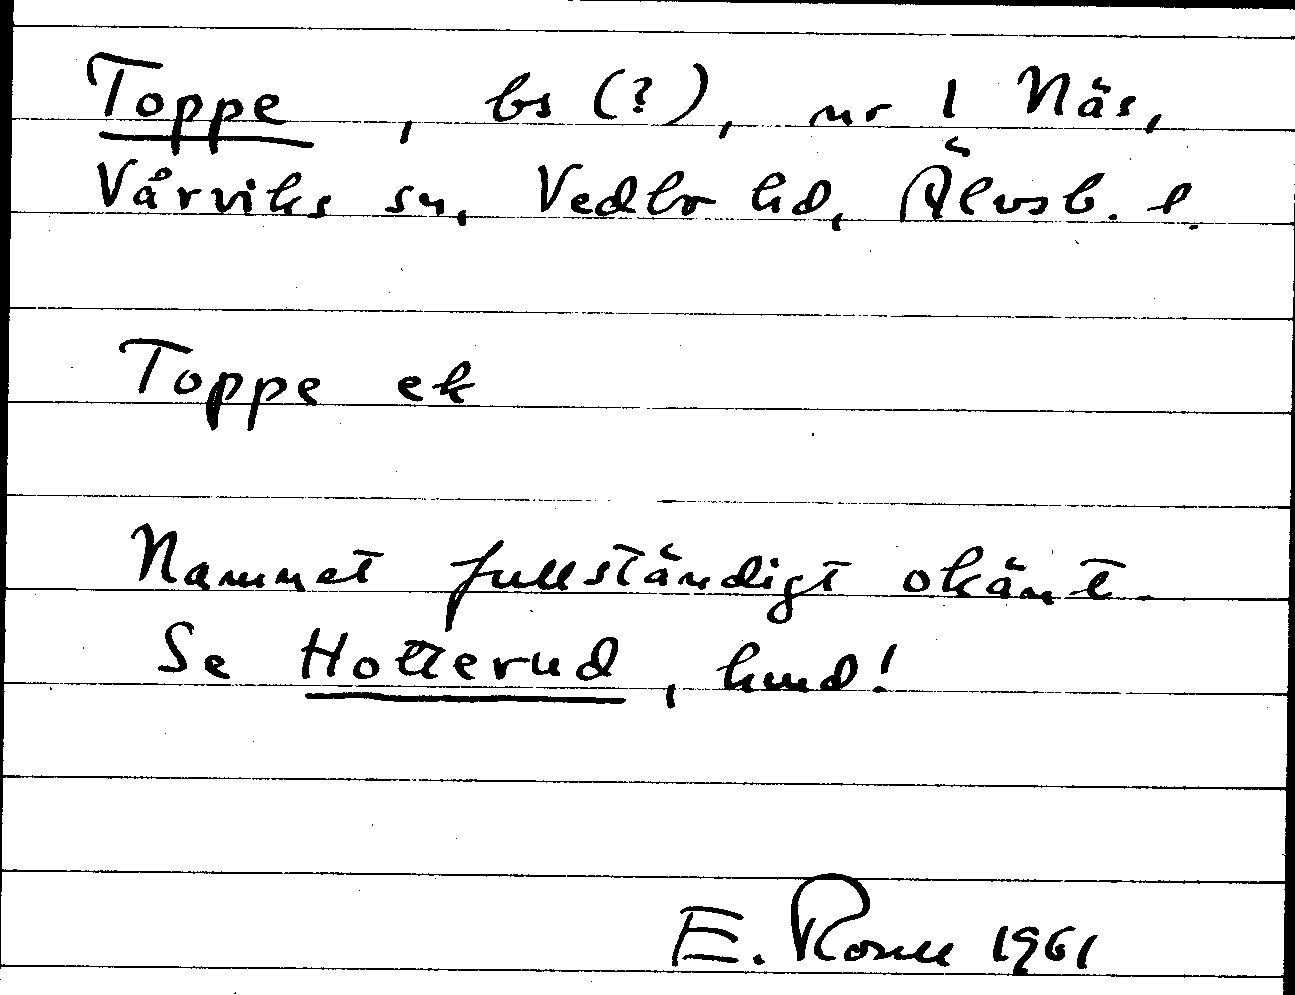 Toppe, bs (?), nr 1 Näs,
Vårviks sn, Vedbo hd, Älvsb. l.
Toppe ek
Namnet fullständigt okänt.
Se Hotterud, hmd!
E. 1961